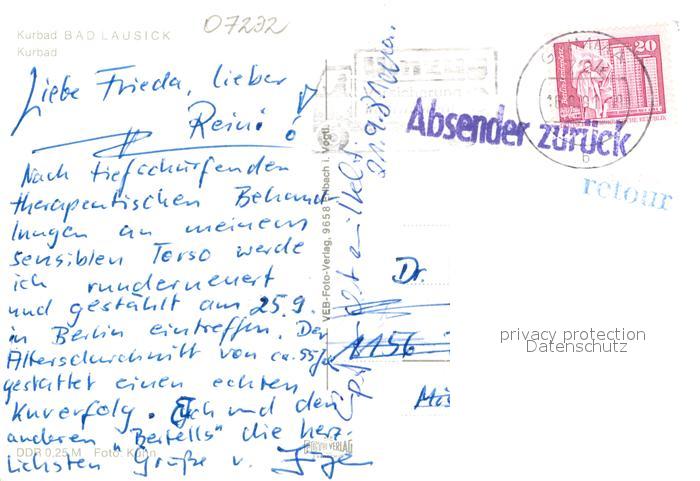 07232
Kurbad BAD LAUSICK
Kurbad
Liebe Frieda, lieber
Reini!
Nach tiefschürfenden
therapeutischen Behand
lungen an meinem
sensiblen Torso werde
ich runderneuert
und gestählt am 25.9.
in Berlin eintreffen. Der
Altersdurchschnitt von ca. 55
gestattet einen echten
Kurerfolg. Euch und den
anderen "Bertells" die herz-
lichsten Grüße v. Jürgen
DDR 0,25 M Foto: Kühn
VEB-Foto-Verlag, 9658 Erlbach i. Vogtl.
21.9.
20
Absender zurück
retour
Dr.
1156
privacy protection
Datenschutz